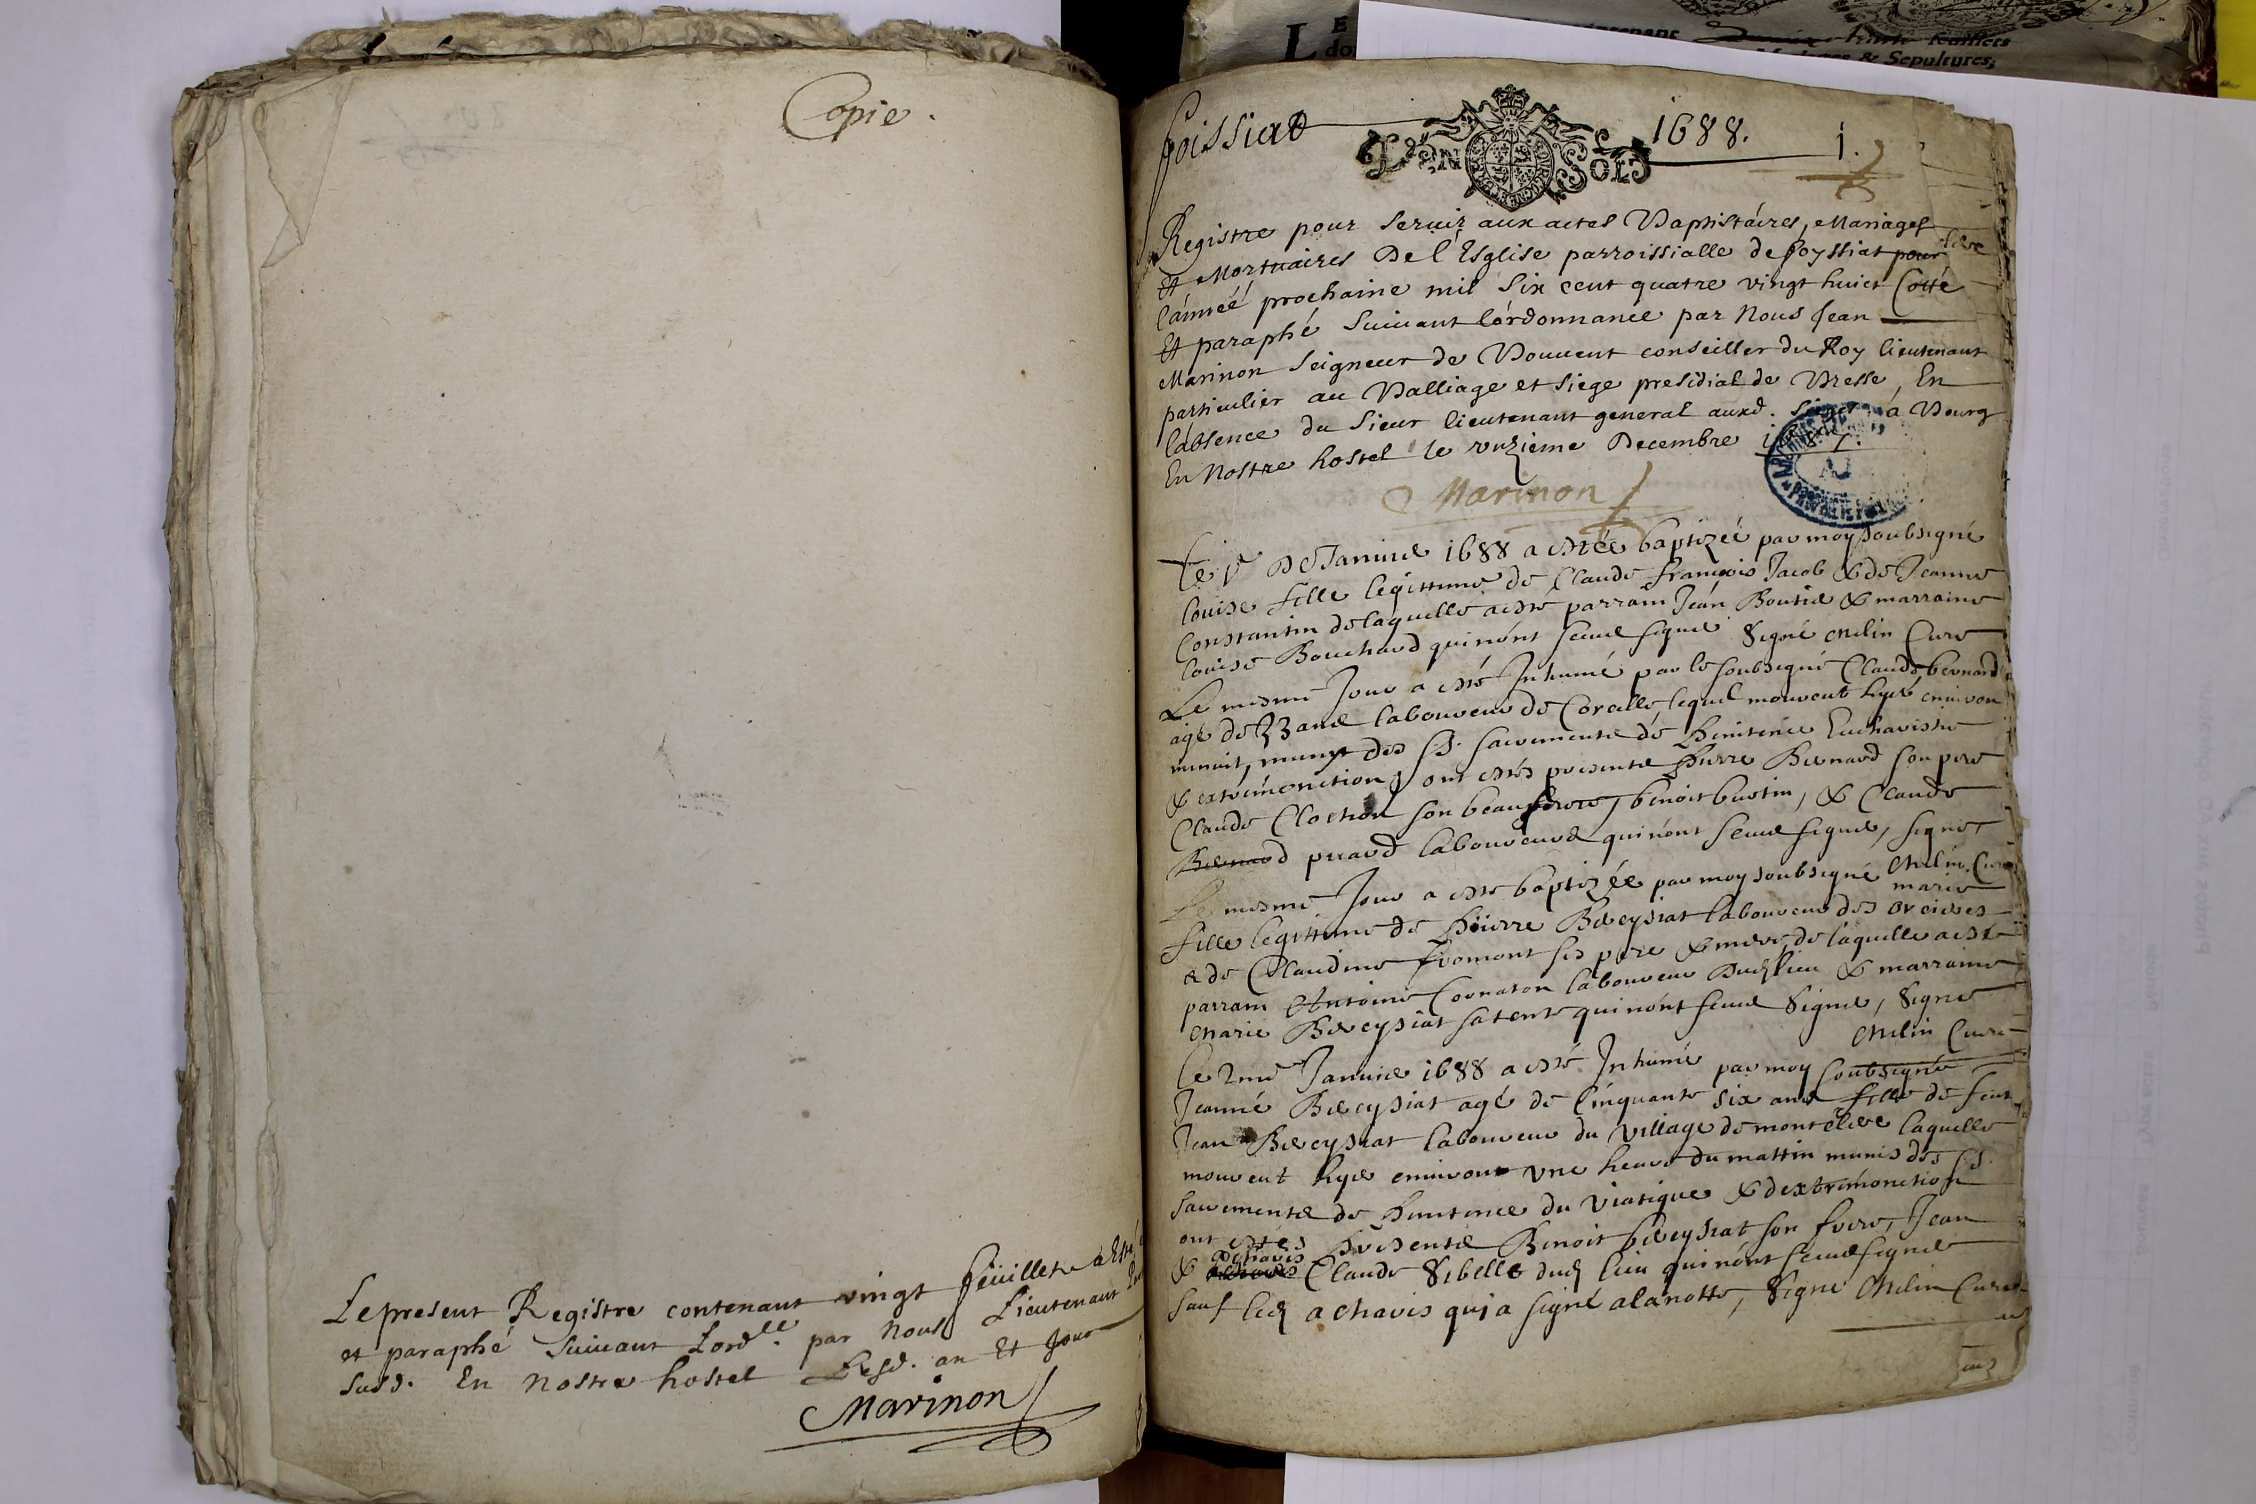 Copie.
Le present Registre contenant vingt feüillets a Esté
et paraphé suiuant Lord.lle par Nous Lieutenant
susd. En Nostre hostel Lesd. an Et Jour
Marinon
foissiat
1688.
1.
UN SOLS
Registre pour seruir aux actes Baptistaires, Mariages
et Mortuaires De l'Esglise parroissialle de foyssiat pour
l'année prochaine mil six cent quatre vingt huict Cotté
Et paraphé suiuant lordonnance par Nous Jean
Marinon seigneur de Bouuent conseiller du Roy lieutenant
particulier au Balliage et siege presidial de Bresse, En
labsence du sieur lieutenant general auxd. sieges a Bourg
En Nostre hostel le vnzieme Decembre
Marinon
Le 1er De Januier 1688 a estée baptizée par moy soubsigné
louise fille legittime de Claude françois Jacob & de Jeanne
Constantin de laquelle a esté parrain Jean Boutie & marraine
louise Bouchard qui n'ont sceue signer signé Melin Cure
Le mesme Jour a esté Inhumé par le soubsigné Claude bernard
agé de 33 ans laboureur de Corcelle, lequel mourut hyer enuiron
minuit, muny des SS. sacrements de Penitence Eucharistie
& extremonction, ont estés presents Pierre Bernard son pere
Claude Clochon son beaufrere, benoit burtin, & Claude
Bernard perard laboureurs qui n'ont sceue signer, signé
Melin Cure
Le mesme Jour a esté baptizée par moy soubsigné marie
fille legittime de Pierre Breysiat laboureur des orcieres
& de Claudine fromont ses pere & mere, de laquelle a esté
parrain Antoine Cornaton laboureur dud lieu & marraine
Marie Breysiat sa tente qui n'ont sceue signer, signé
Melin Cure
Le 2me Januier 1688 a esté Inhumé par moy soubsigné
Jeanne Breysiat agé de Cinquante six ans fille de feu
Jean Breysiat laboureur du village de montelier laquelle
mourut hyer enuiron vne heure du mattin munis des SS.
sacrements de Penitence du viatique & dextremonction
ont estés Presents Benoit breysiat son frere, Jean
achavis
& Claude Sibelle dud lieu qui n'ont sceue signer
sauf led achavis qui a signé a la notte, signé Melin Curé